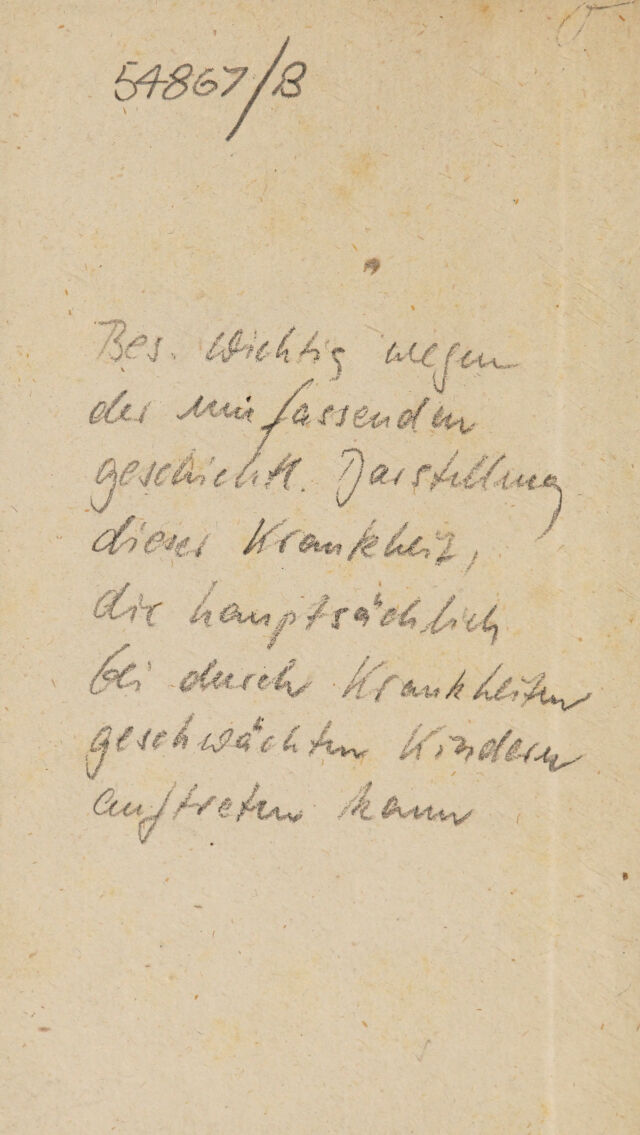 54867/B
Bes. wichtig wegen
der umfassenden
geschichtl. Darstellung
dieser Krankheit,
die hauptsächlich
bei durch Krankheiten
geschwächten Kindern
auftreten kann